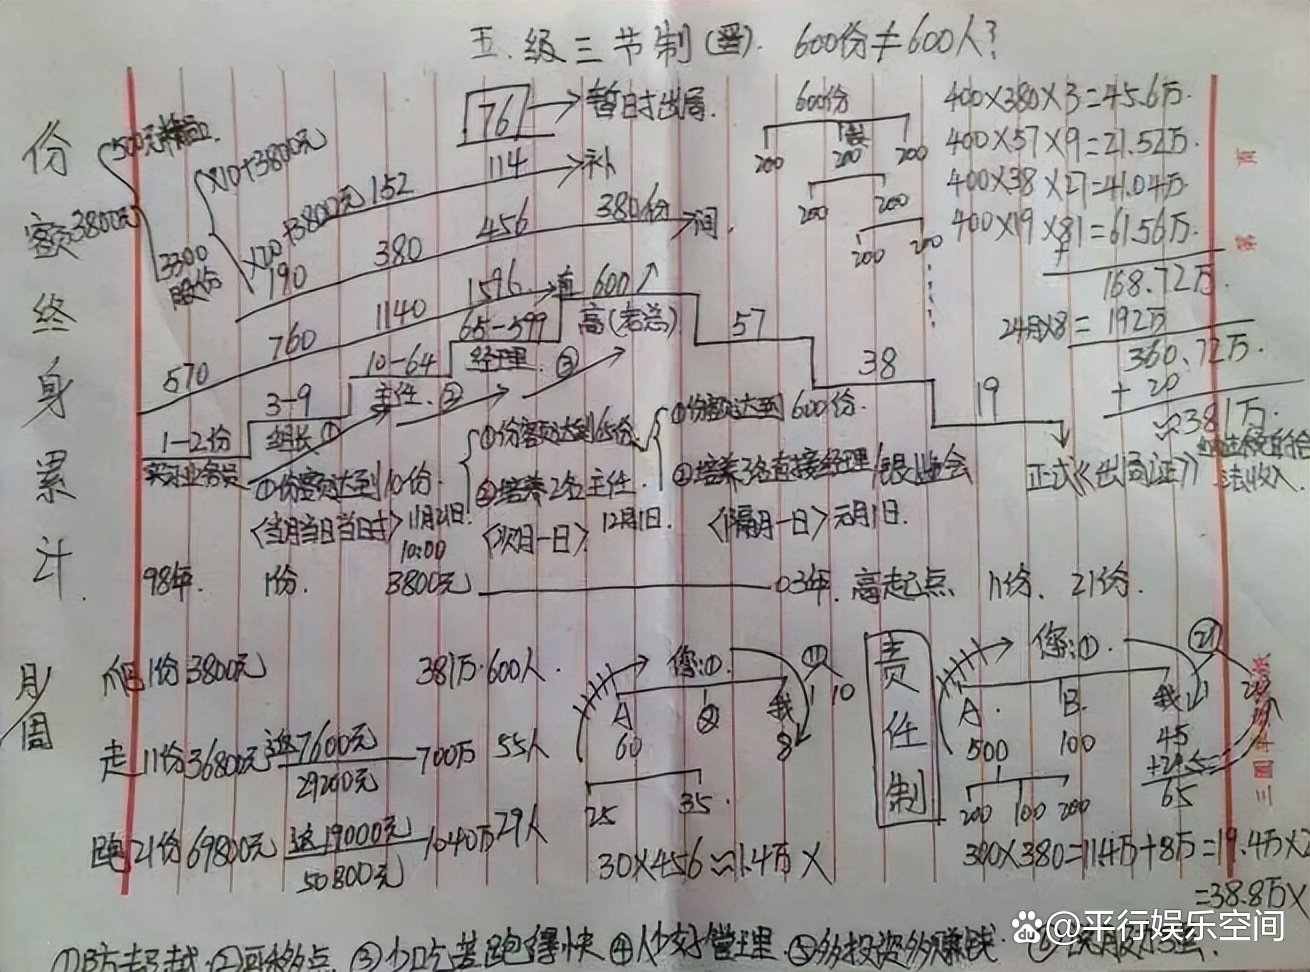 五级三节制(晋). 600份≠600人?
份额终身累计
月/周
76→暂时出局.
114→补
500元
×10+3800元
152
600份
200 200 200
200 200
200 200
400×380×3=45.6万.
400×57×9=21.52万.
400×38×27=41.04万.
400×19×81=61.56万.
+
168.72万.
24月×8=192万
360.72万.
+20
≈381万.
法收入.
3800元
3300
股份
×20+3800元
190 380 456 380份→间.
570 760 1140 1596→直
600
高(老总)
65-599
经理. ③
10-64
主任. ②
3-9
组长 ①
1-2份
实习业务员
57
38
19
正式《出局证》
①份额达到10份.
〈当月当日当日时〉 11月21日. 10:00
①份额达到65份
②培养2名主任.
〈次月一日〉 12月1日.
①份额达到600份.
②培养3名直接经理
〈隔月一日〉元月1日.
98年. 1份. 3800元——03年. 高起点 11份、21份.
1份3800元 381万.600人.
走11份36800元 返7600元 29200元 700万 55人
跑21份69800元 返19000元 50800元 1040万 29人
您:①
A ② 我
60 8
25 35.
11
1 10
30×456≈1.4万×
责任制
您:①.
A. B. 我
500 100 45
200 100 200
65
21
1 20
300×380=11.4万+8万=19.4万×2
=38.8万×
③少吃苦跑得快 ④人少好管理 ⑤多投资多赚钱.
@平行娱乐空间